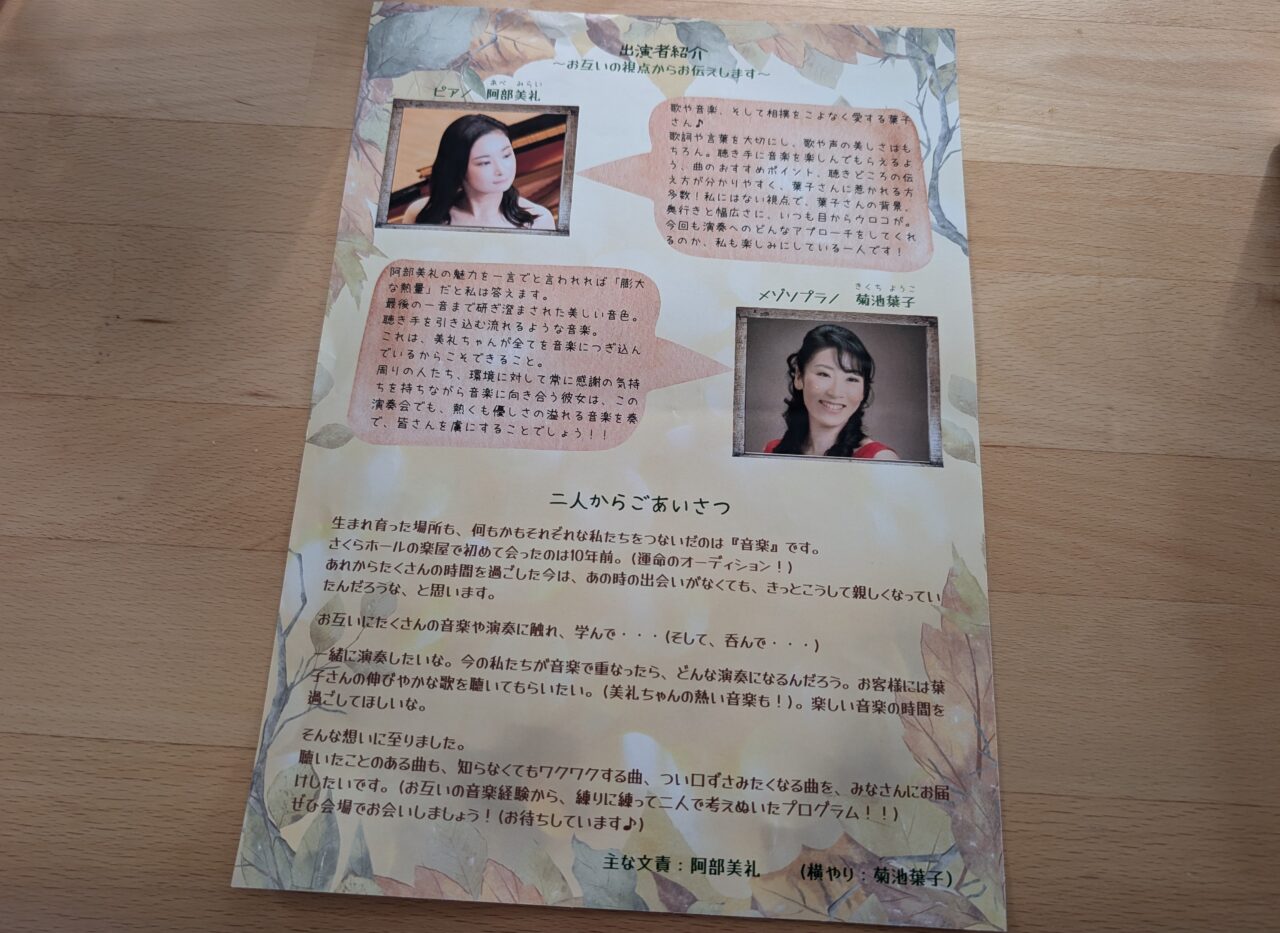 出演者紹介
～お互いの視点からお伝えします～
あべ みらい
ピアノ 阿部美礼
歌や音楽、そして相撲をこよなく愛する葉子
さん♪
歌詞や言葉を大切にし、歌や声の美しさはも
ちろん。聴き手に音楽を楽しんでもらえるよ
う、曲のおすすめポイント、聴きどころの伝
え方が分かりやすく、葉子さんに惹かれる方
多数！私にはない視点で、葉子さんの背景、
奥行きと幅広さに、いつも目からウロコが。
今回も演奏へのどんなアプローチをしてくれ
るのか、私も楽しみにしている一人です！
阿部美礼の魅力を一言でと言われれば「膨大
な熱量」だと私は答えます。
最後の一音まで研ぎ澄まされた美しい音色。
聴き手を引き込む流れるような音楽。
これは、美礼ちゃんが全てを音楽につぎ込ん
でいるからこそできること。
周りの人たち、環境に対して常に感謝の気持
ちを持ちながら音楽に向き合う彼女は、この
演奏会でも、熱くも優しさの溢れる音楽を奏
で、皆さんを虜にすることでしょう！！
きくち ようこ
メゾソプラノ 菊池葉子
二人からごあいさつ
生まれ育った場所も、何もかもそれぞれな私たちをつないだのは『音楽』です。
さくらホールの楽屋で初めて会ったのは10年前。(運命のオーディション！)
あれからたくさんの時間を過ごした今は、あの時の出会いがなくても、きっとこうして親しくなってい
たんだろうな、と思います。
お互いにたくさんの音楽や演奏に触れ、学んで・・・(そして、呑んで・・・)
一緒に演奏したいな。今の私たちが音楽で重なったら、どんな演奏になるんだろう。お客様には葉
子さんの伸びやかな歌を聴いてもらいたい。(美礼ちゃんの熱い音楽も！)。楽しい音楽の時間を
過ごしてほしいな。
そんな想いに至りました。
聴いたことのある曲も、知らなくてもワクワクする曲、つい口ずさみたくなる曲を、みなさんにお届
けしたいです。(お互いの音楽経験から、練りに練って二人で考えぬいたプログラム！！)
ぜひ会場でお会いしましょう！(お待ちしています♪)
主な文責：阿部美礼 (横やり：菊池葉子)